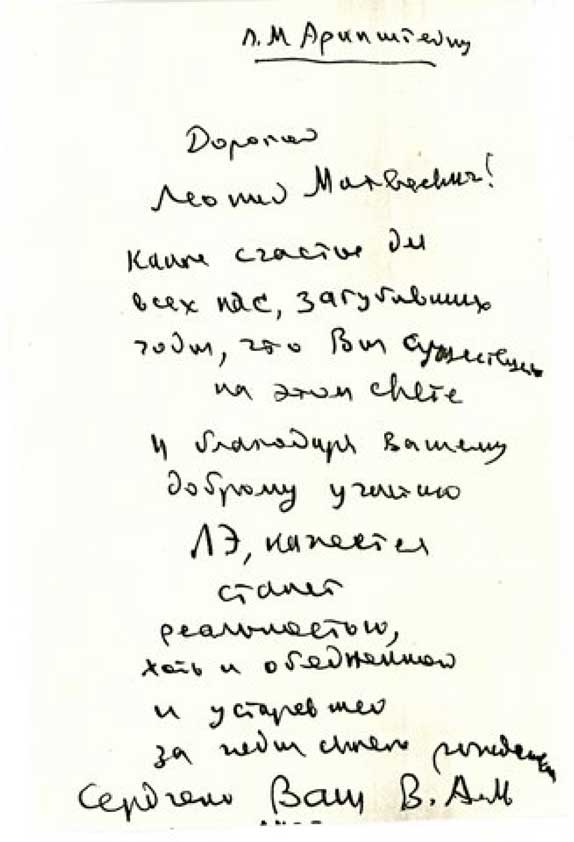 Л.М Аринштейну
Дорогой
Леонид Матвеевич!
Какое счастье для
всех нас, загубивших
годы, что Вы существуете
на этом свете
и благодаря вашему
доброму участию
ЛЭ, кажется
станет
реальностью,
хоть и обедненной
и устаревшей
за годы своего рождения
Сердечно Ваш В. А.М